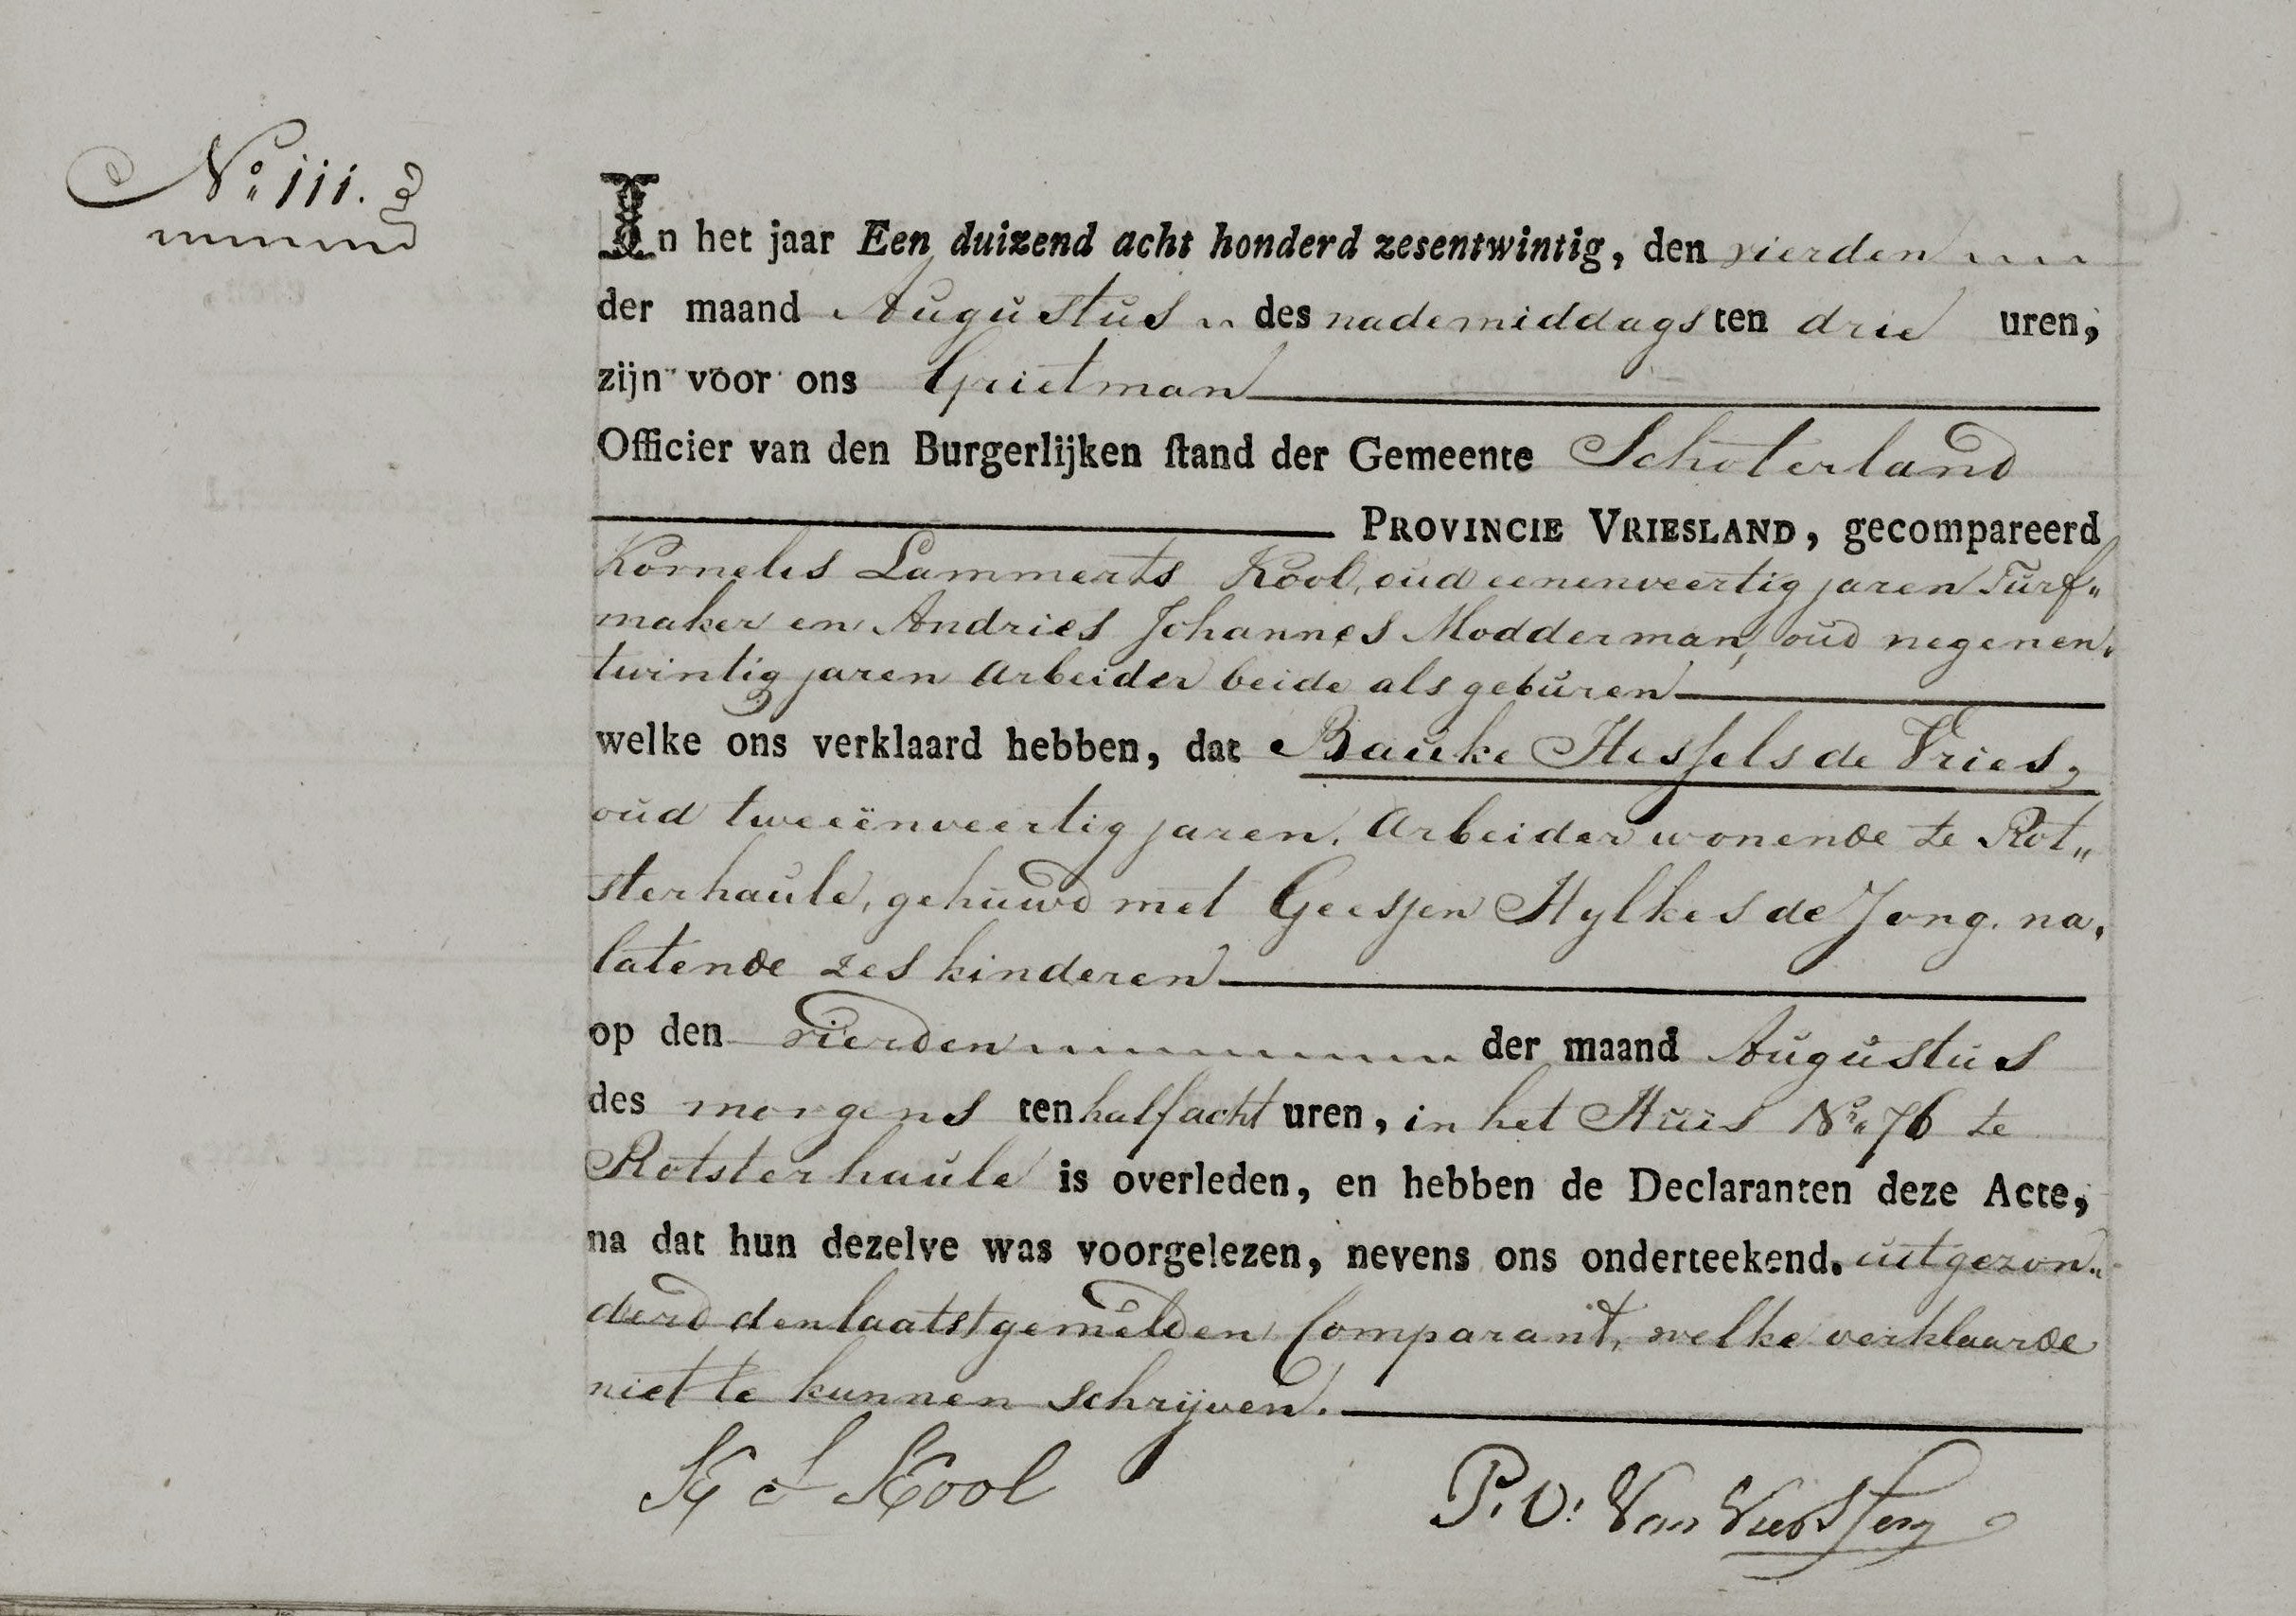 No. 111.
In het jaar Een duizend acht honderd zesentwintig, den vierden
der maand Augustus des nademiddags ten drie uren,
zijn voor ons Grietman
Officier van den Burgerlijken ſtand der Gemeente Schoterland
PROVINCIE VRIESLAND, gecompareerd
Kornelis Lammerts Kool, oud eenenveertig jaren Turf„
maker en Andries Johannes Modderman, oud negenen„
twintig jaren Arbeider beide als geburen
welke ons verklaard hebben, dat Bauke Hessels de Vries,
oud tweeënveertig jaren. Arbeider wonende te Rot„
sterhaule, gehuwd met Geesjen Hylkes de Jong. na„
latende zes kinderen
op den vierden der maand Augustus
des morgens ten half acht uren, in het Huis No. 76 te
Rotsterhaule is overleden, en hebben de Declaranten deze Acte,
na dat hun dezelve was voorgelezen, nevens ons onderteekend. uitgezon„
derd den laatstgemelden Comparant, welke verklaarde
niet te kunnen schrijven.
K L Kool
P. V: Van